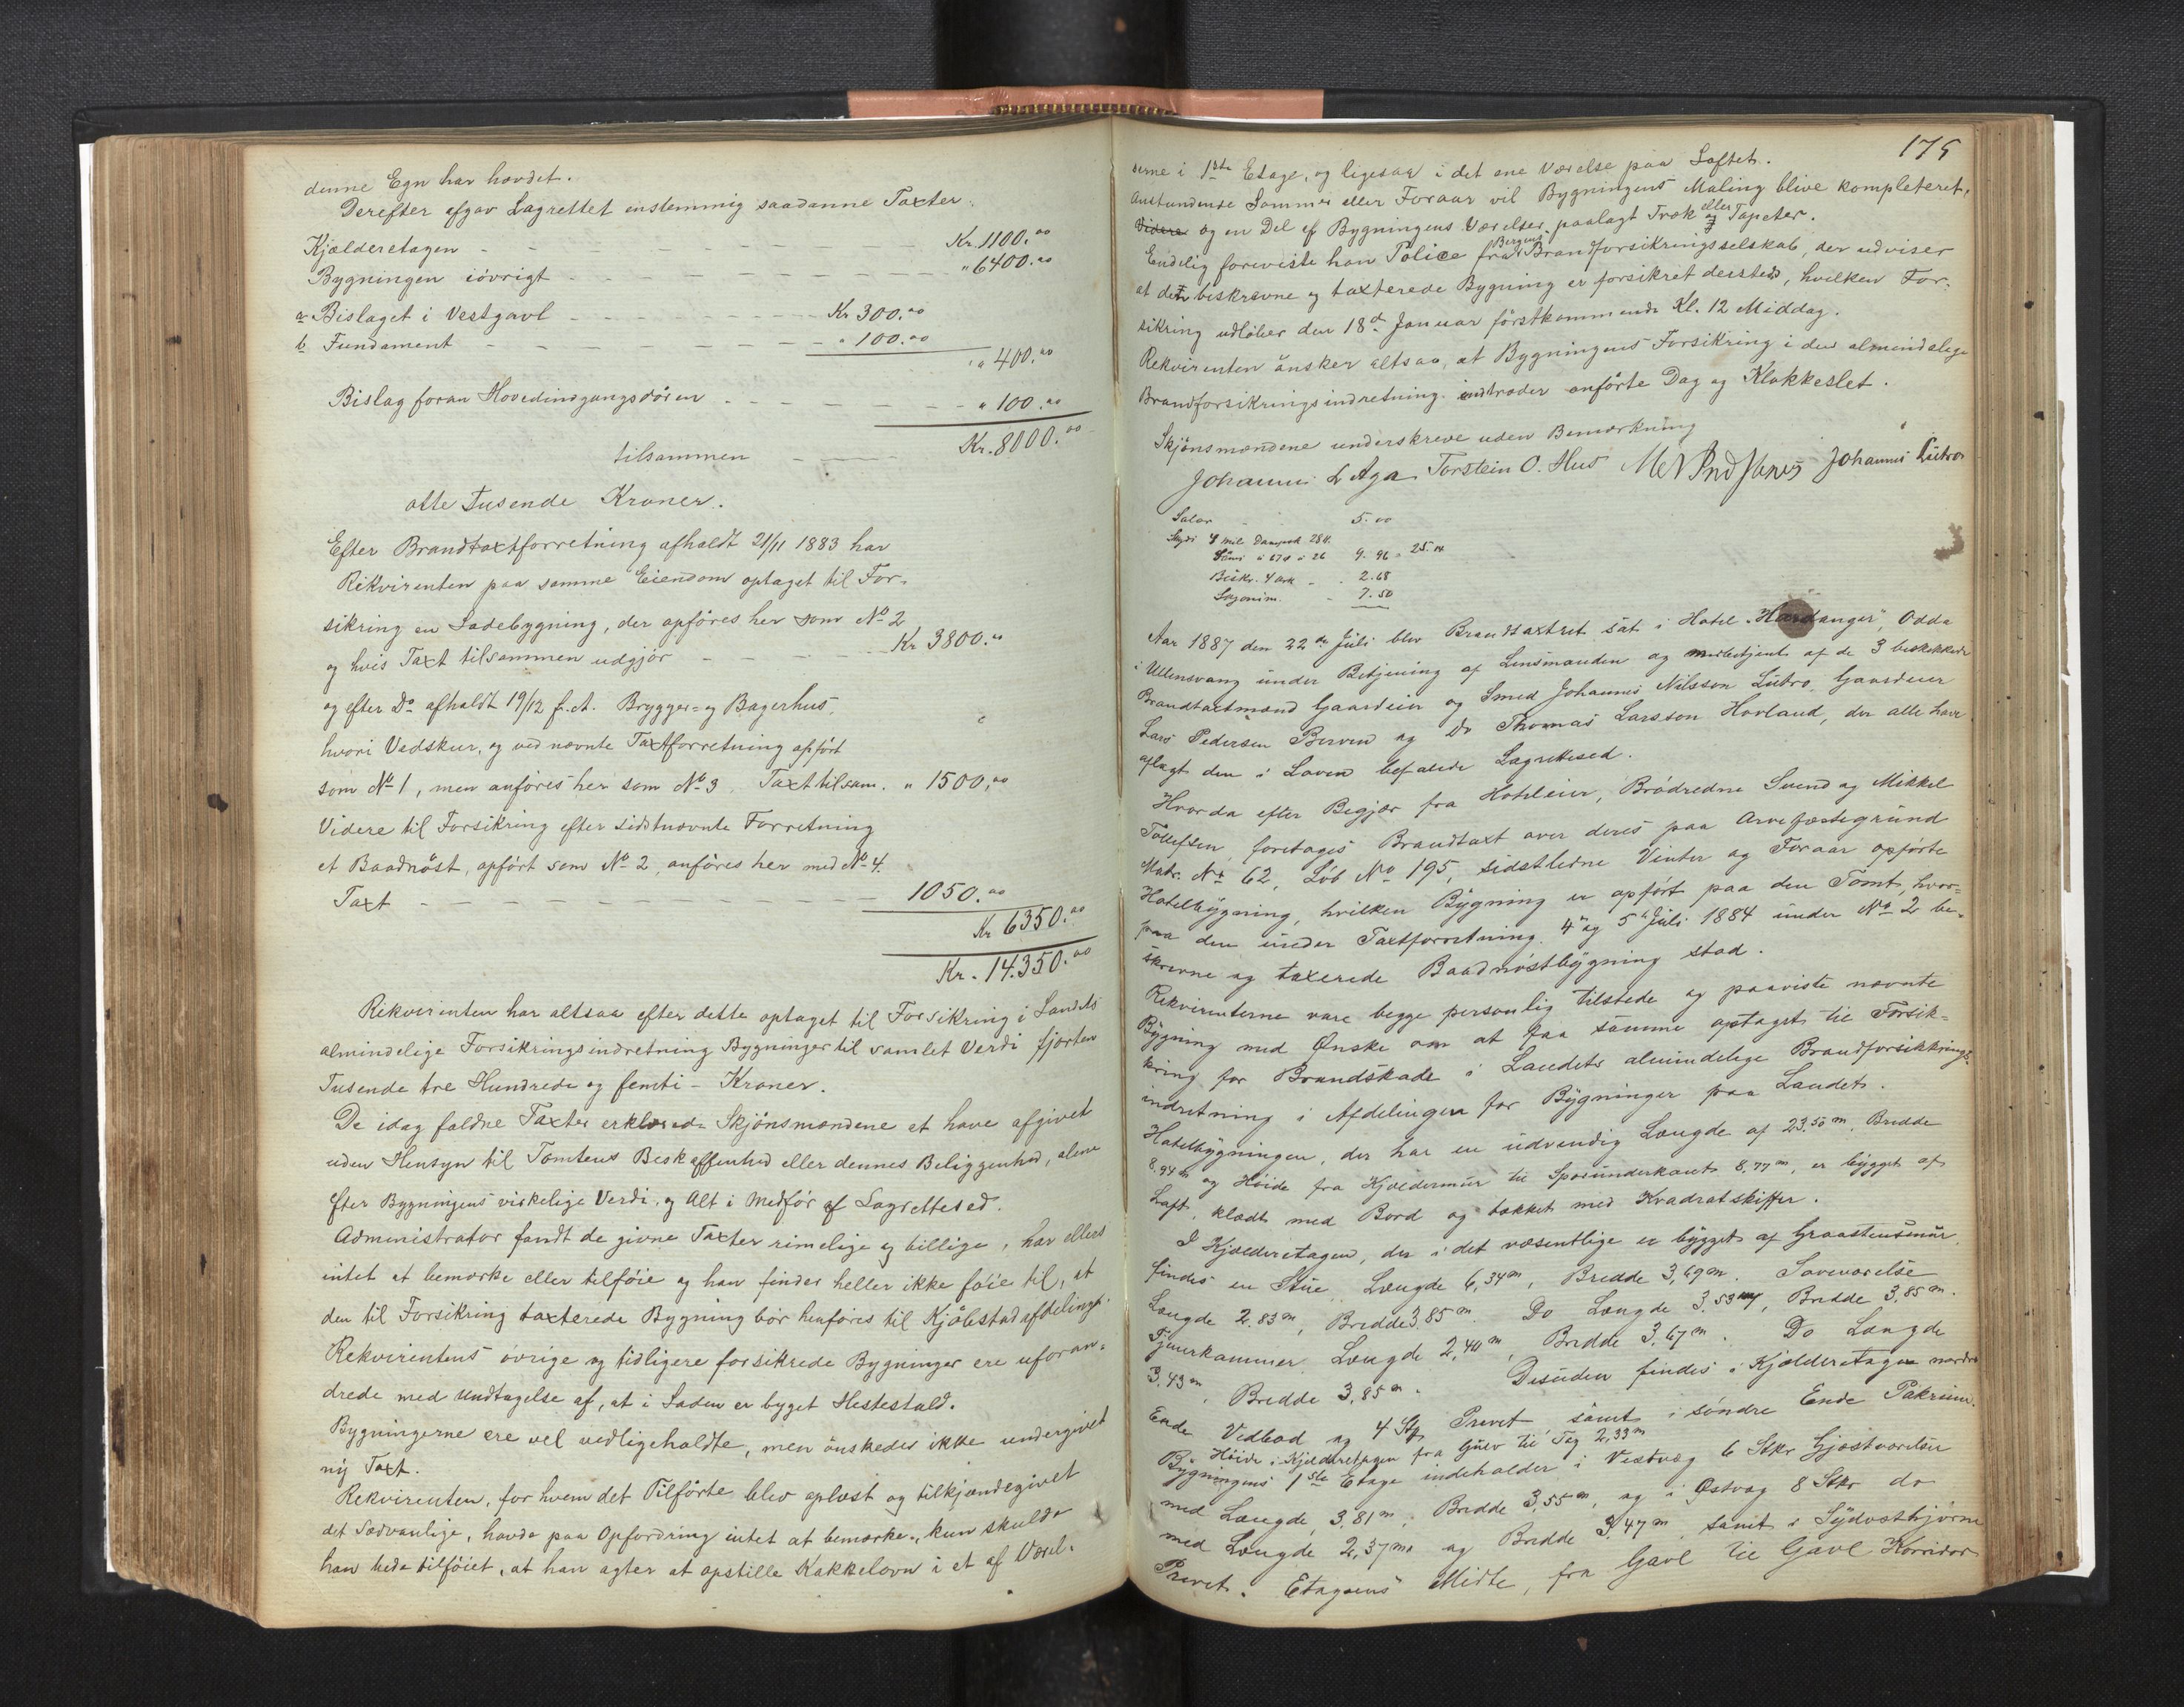 denne Egn har havdt.
Derefter afgav Lagrettet enstemmig saadanne Taxter:
Kjælderetagen - - - - - - - Kr. 1100.00
Bygningen iøvrigt - - - - - - - " 6400.00
a Bislaget i Vestgavl - - - - - - Kr 300.00
b Fundament - - - - - - " 100.00
" 400.00
Bislag foran Hovedindgangsdøren - - - - - - " 100.00
tilsammen - - - Kr. 8000.00
otte Tusende Kroner.
Efter Brandtaxtforretning afholdt 21/11 1883 har
Rekvirenten paa samme Eiendom optaget til For-
sikring en Ladebygning, der opføres her som No 2
og hvis Taxt tilsammen udgjør - - - - Kr 3800.00
og efter Do afholdt 19/12 f.A. Brygger= og Bagerhus,
hvori Vedskur, og ved nævnte Taxtforretning opført
som No 1, men anføres her som No 3. Taxt tilsam. " 1500.00
Videre til Forsikring efter sidstnævnte Forretning
et Baadnøst, opført som No 2, anføres her med No 4.
Taxt - - - - - - - - - 1050.00
Kr 6350.00
Kr. 14.350.00
Rekvirenten har altsaa efter dette optaget til Forsikring i Landets
almindelige Forsikringsindretning Bygninger til samlet Verdi fjorten
Tusende tre Hundrede og femti - Kroner.
De idag faldne Taxter erklærede Skjønsmændene at have afgivet
uden Hensyn til Tomtens Beskaffenhed eller dennes Beliggenhed, alene
efter Bygningens virkelige Verdi, og Alt i Medfør af Lagrettesed.
Administrator fandt de givne Taxter rimelige og billige, har ellers
intet at bemærke eller tilføie og han finder heller ikke føie til, at
den til Forsikring taxterede Bygning bør henføres til Kjøbstadafdelingen.
Rekvirentens øvrige og tidligere forsikrede Bygninger ere uforan-
drede med Undtagelse af, at i Laden er bygget Hestestald.
Bygningerne ere vel vedligeholdte, men ønskedes ikke undergivet
ny Taxt.
Rekvirenten, for hvem det Tilførte blev oplæst og tilkjendegivet
det Sædvanlige, havde paa Opfordring intet at bemærke, kun skulde
han bede tilføiet, at han agter at opstille Kakkelovn i et af Værel-
175
serne i 1ste Etage, og ligesaa i det ene Værelse paa Loftet.
Anstundende Sommer eller Foraar vil Bygningens Maling blive kompleteret,
Videre og en Del af Bygningens Værelser paalagt Træk eller og Tapeter.
Endelig foreviste han Police fra Bergens Brandforsikringsselskab, der udviser
at den beskrevne og taxterede Bygning er forsikret dersteds, hvilken For-
sikring udløber den 18de Januar førstkommende Kl. 12 Middag.
Rekvirenten ønsker altsaa, at Bygningens Forsikring i den almindelige
Brandforsikringsindretning indtræder anførte Dag og Klokkeslet.
Skjønsmændene underskreve uden Bemærkning
Johannes L Aga Torstein O. Hus Johannes Lutro
Salær 5.00
Skyds 4 mil Dampsk 284.
9.96 = 25.14
Beskr. 4 ark - - 2.68
7.50
Aar 1887 den 22de Juli blev Brandtaxtret sat i Hotel "Hardanger", Odda
i Ullensvang under Betjening af Lensmanden og medbetjent af de 3 beskikkede
Brandtaxtmænd Gaardeier og Smed Johannes Nilsson Lutro, Gaardeier
Lars Pedersen Berven og Do Thomas Larsson Hovland, der alle have
aflagt den i Loven befalede Lagrettesed.
Hvorda efter Begjær fra Hoteleier, Brødrene Svend og Mikkel
Tollefsen, foretages Brandtaxt over deres paa Arvefæstegrund
Matr. No 62, Løb No 195, sidstledne Vinter og Foraar opførte
Hotelbygning, hvilken Bygning er opført paa den Tomt, hvor-
paa den under Taxtforretning 4de og 5te Juli 1884 under No 2 be-
skrevne og taxerede Baadnøstbygning stod.
Rekvirenterne vare begge personlig tilstede og paaviste nævnte
Bygning med Ønske om at faa samme optaget til Forsik-
kring for Brandskade i Landets almindelige Brandforsikkrings-
indretning i Afdelingen for Bygninger paa Landet.
Hotelbygningen, der har en udvendig Længde af 23.50 m, Bredde
8.94 m og Høide fra Kjældermur til Sperunderkant 8,77 m, er bygget af
Laft, klædt med Bord og tækket med Kvadratskiffer.
I Kjælderetagen, der i det væsentlige er bygget af Graastensmur,
findes en Stue, Længde 6,34 m, Bredde 3,69 m. Soveværelse
Længde 2.83 m, Bredde 3,85 m. Do Længde 3.53 m, Bredde 3,85 m.
Pigekammer Længde 2,40 m, Bredde 3,67 m. Do Længde
3,43 m, Bredde 3,85 m. Desuden findes i Kjælderetagen nordre
Ende Vedbod og 4 Stk Privet samt i søndre Ende Pakrum.
Høide i Kjælderetagen fra Gulv til Tag 2,33 m
Bygningens 1ste Etage indeholder i Vestvæg 6 Stkr Gjæsteværelser
med Længde 3,81 m, Bredde 3,55 m, og i Østvæg 8 Stkr do
med Længde 2,37 m og Bredde 3,47 m samt i Sydosthjørne
Privet. Etagens Midte, fra Gavl til Gavl Korridor